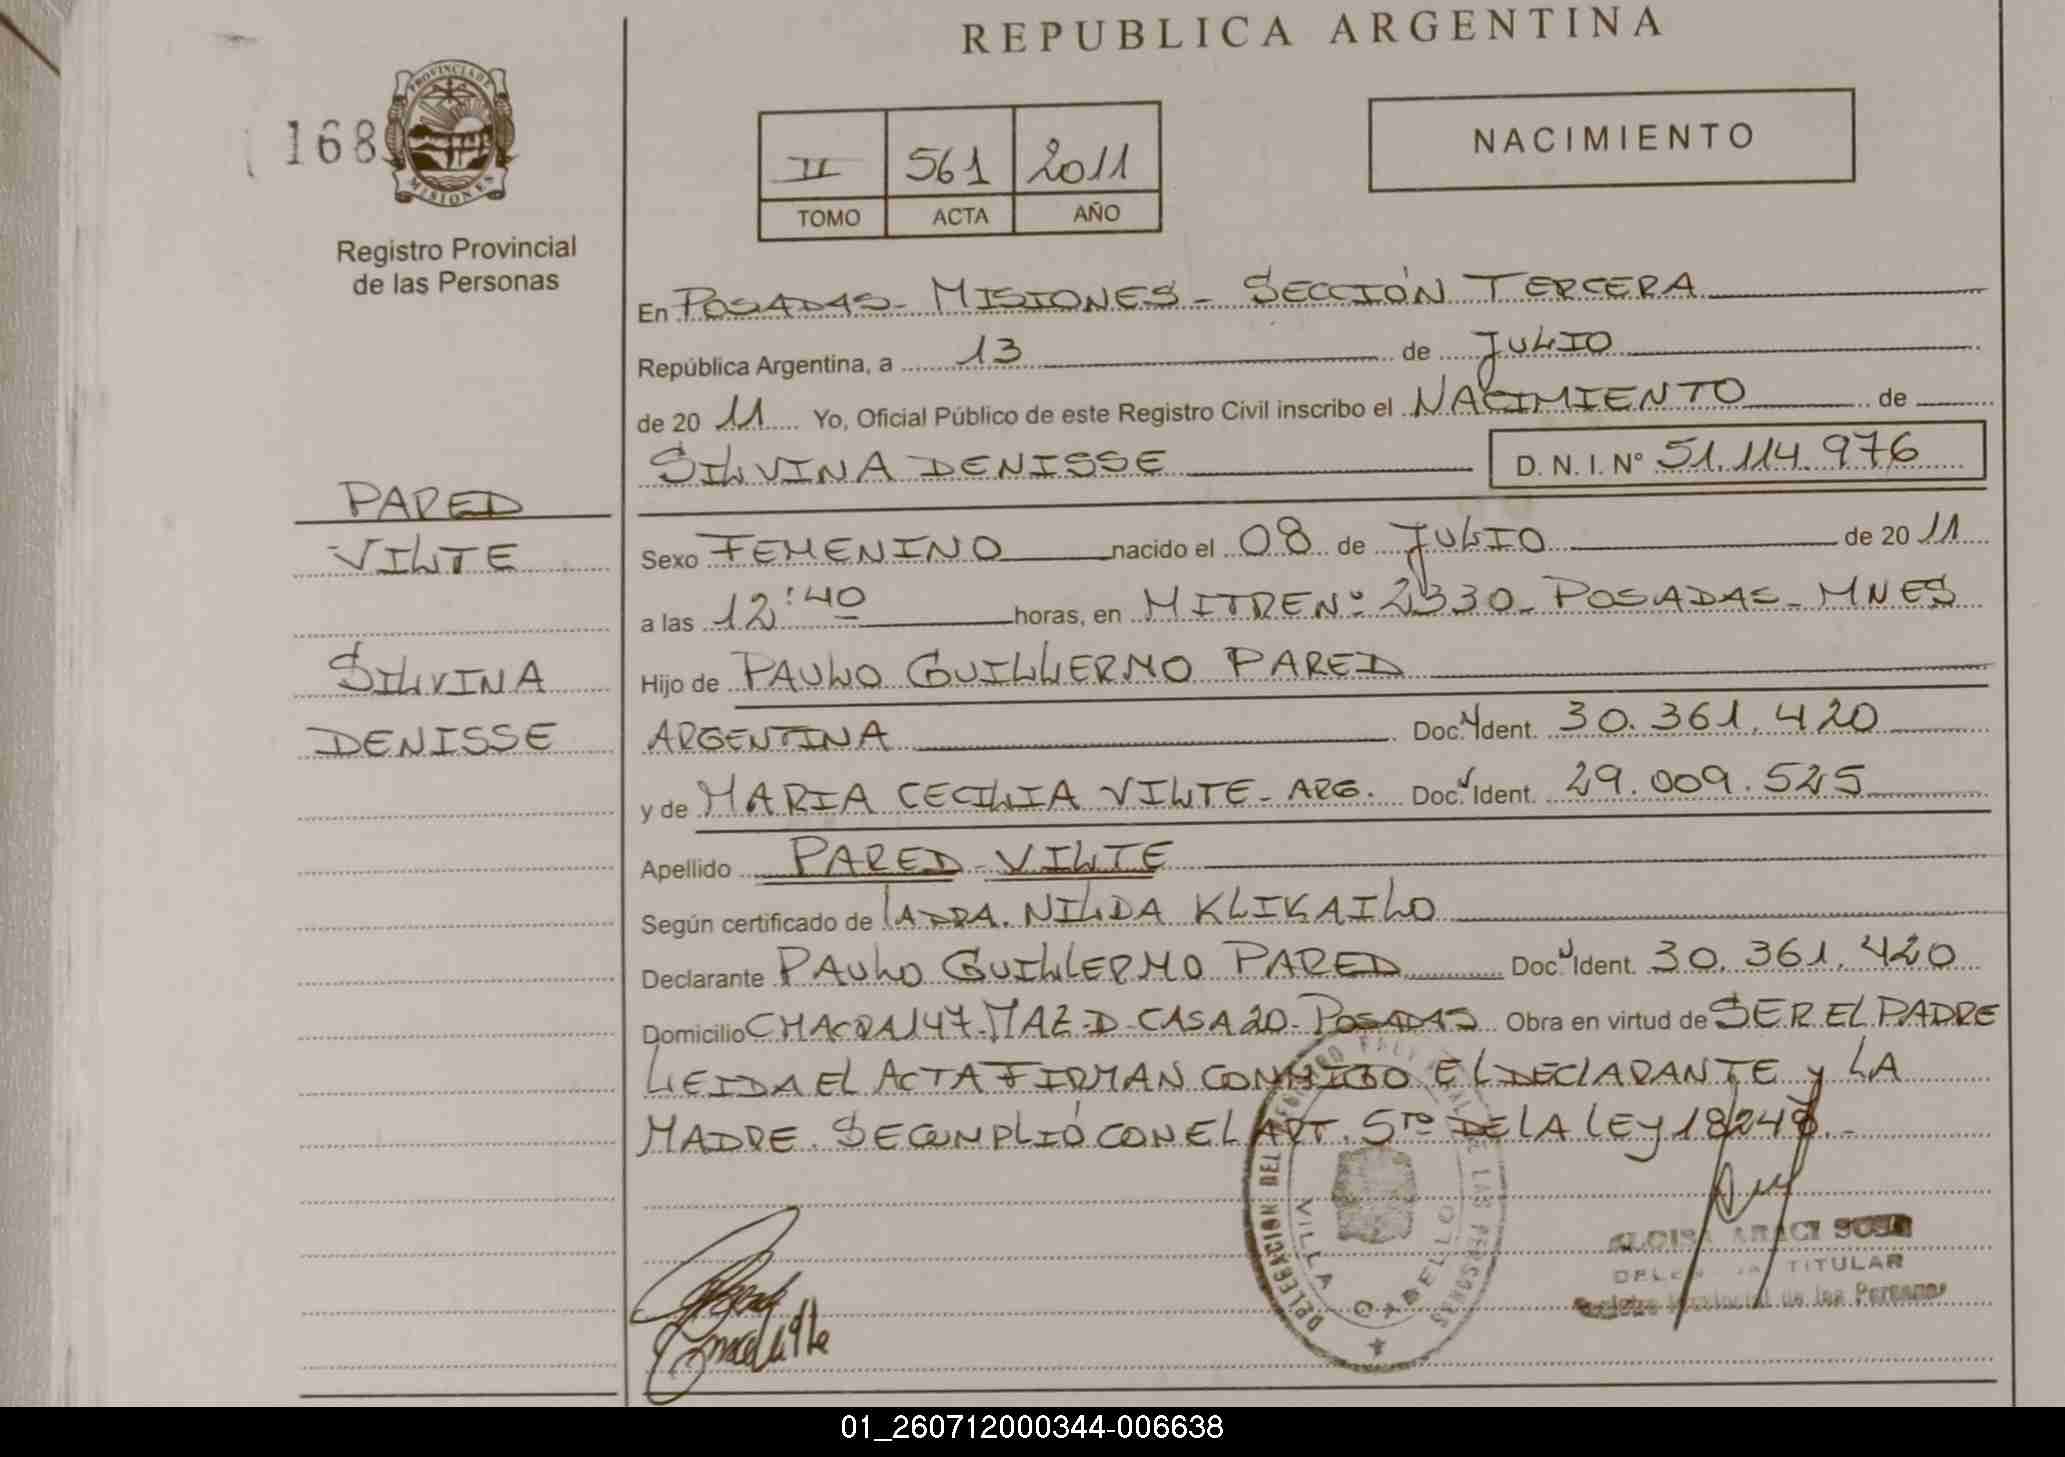 REPUBLICA ARGENTINA
168
PROVINCIA DE
MISIONES
Registro Provincial
de las Personas
II 561 2011
TOMO ACTA AÑO
NACIMIENTO
En POSADAS - MISIONES - SECCIÓN TERCERA
República Argentina, a 13 de JULIO
de 20 11 Yo, Oficial Público de este Registro Civil inscribo el NACIMIENTO de
SILVINA DENISSE D. N. I. Nº 51.114.976
PARED
VILTE
SILVINA
DENISSE
Sexo FEMENINO nacido el 08 de JULIO de 20 11
a las 12:40 horas, en MITRE Nº 2330 - POSADAS - MNES
Hijo de PAULO GUILLERMO PARED
ARGENTINA Doc. Ident. 30.361.420
y de MARIA CECILIA VILTE - ARG. Doc. Ident. 29.009.525
Apellido PARED - VILTE
Según certificado de LA DRA. NILDA KLIKAILO
Declarante PAULO GUILLERMO PARED Doc. Ident. 30.361.420
Domicilio CHACRA 147 - MAZ - D - CASA 20 - POSADAS Obra en virtud de SER EL PADRE
LEIDA EL ACTA FIRMAN CONMIGO EL DECLARANTE y LA
MADRE. SE CUMPLIÓ CON EL ART. 5TO DE LA LEY 18248.-
DELEGACION DEL REGISTRO PROVINCIAL DE LAS PERSONAS
VILLA CABELLO
TITULAR
Registro Provincial de las Personas
01_260712000344-006638